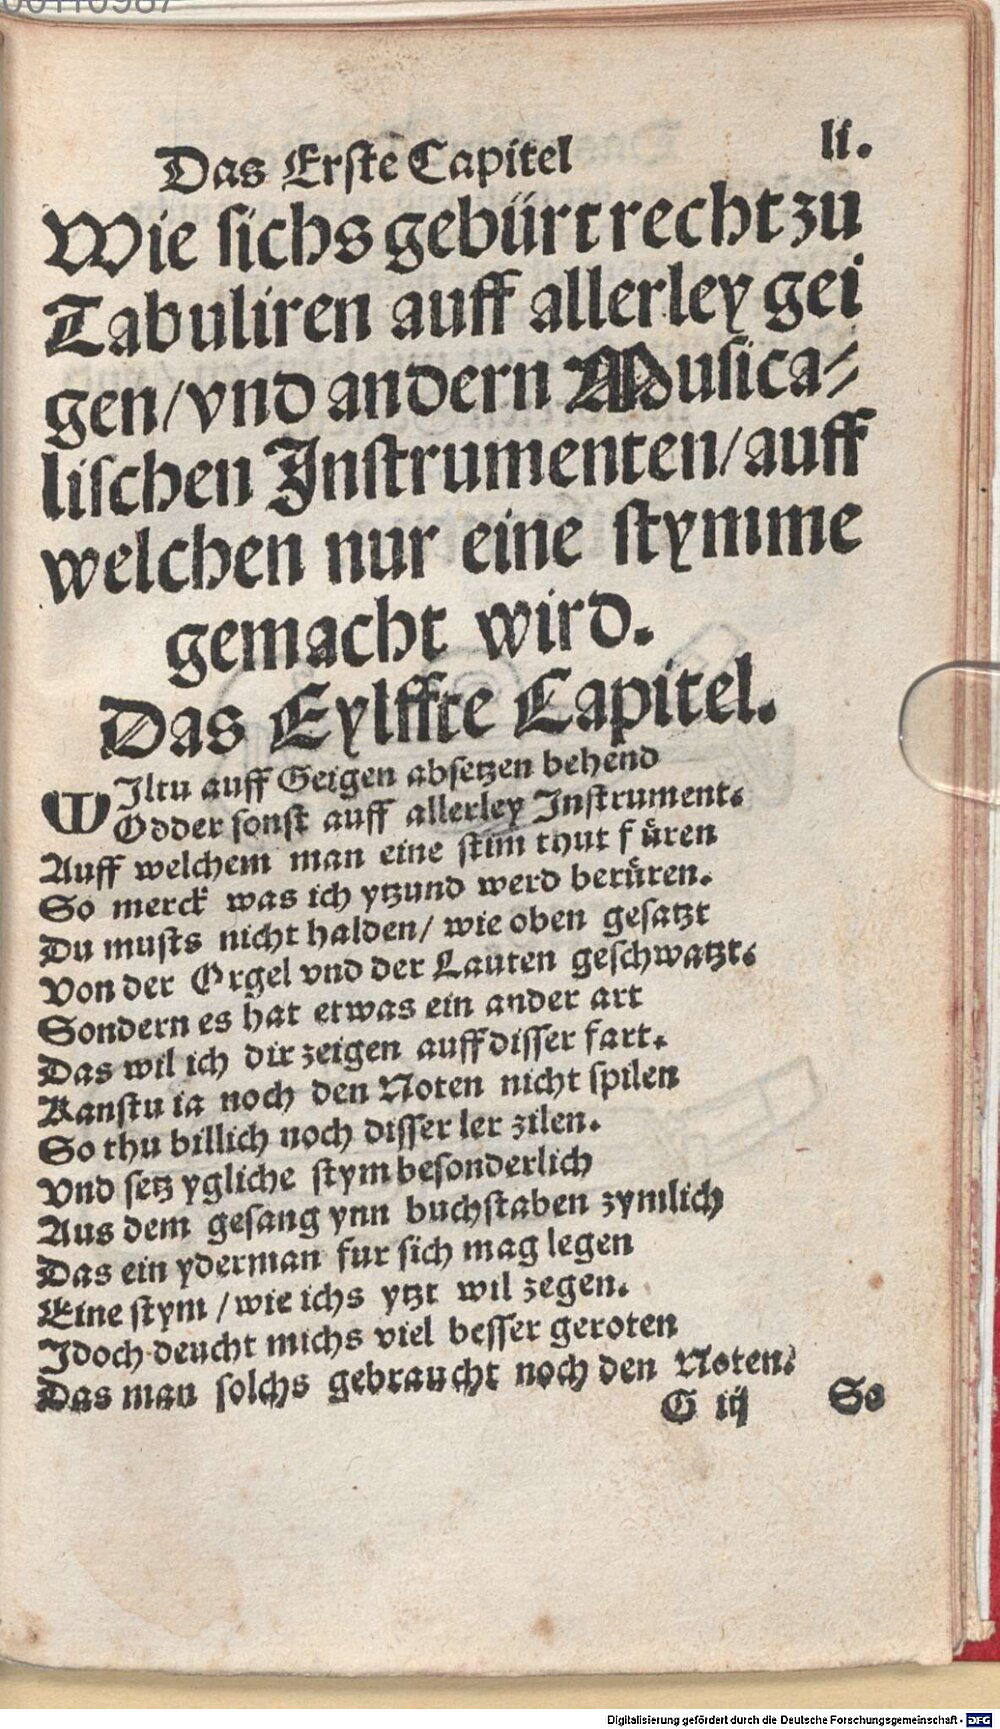 Das Erste Capitel
li.
Wie sichs gebürt recht zu
Tabuliren auff allerley gei
gen/vnd andern Musica⸗
lischen Instrumenten/auff
welchen nur eine stymme
gemacht wird.
Das Eylffte Capitel.
WIltu auff Geigen absetzen behend
Odder sonst auff allerley Instrument.
Auff welchem man eine stim thut füren
So merck was ich ytzund werd berüren.
Du musts nicht halden/ wie oben gesatzt
Von der Orgel vnd der Lauten geschwatzt.
Sondern es hat etwas ein ander art
Das wil ich dir zeigen auff disser fart.
Kanstu ia noch den Noten nicht spilen
So thu billich noch disser ler zilen.
Vnd setz ygliche stym besonderlich
Aus dem gesang ynn buchstaben zymlich
Das ein yderman fur sich mag legen
Eine stym /wie ichs ytzt wil zegen.
Jdoch deucht michs viel besser geroten
Das man solchs gebraucht noch den Noten.
G iij
So
Digitalisierung gefördert durch die Deutsche Forschungsgemeinschaft - DFG